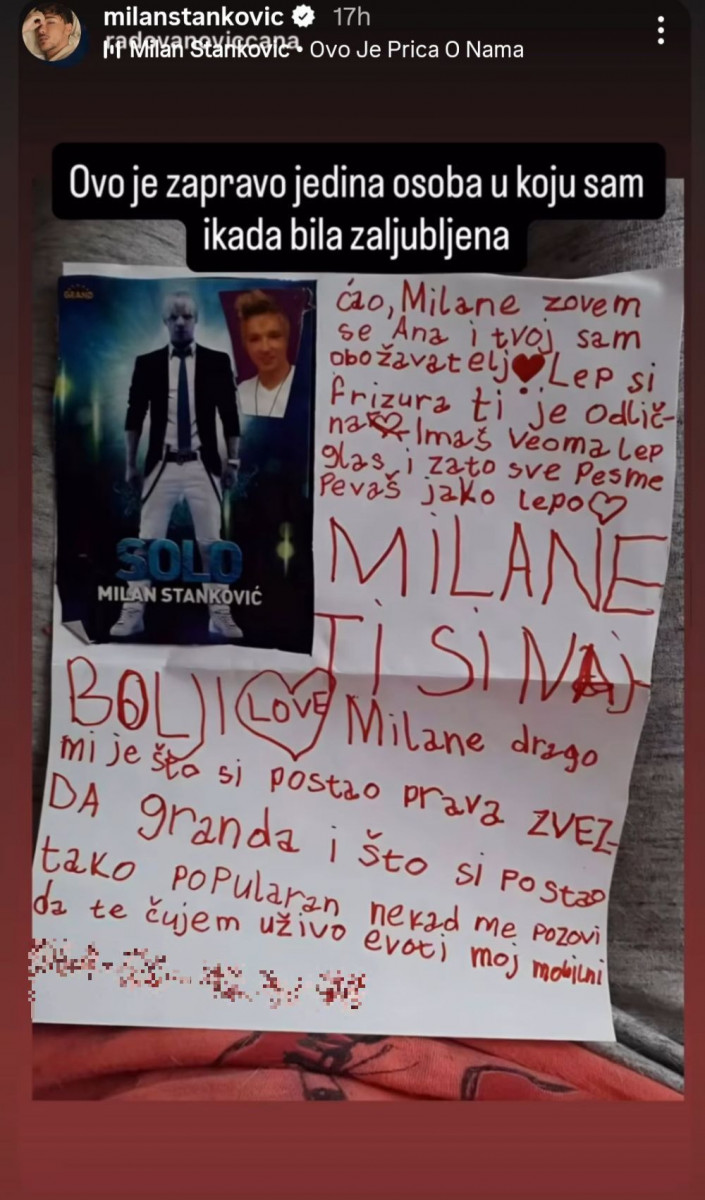 milanstankovic
17h
radovanoviccana
Milan Stanković • Ovo Je Prica O Nama
Ovo je zapravo jedina osoba u koju sam
ikada bila zaljubljena
GRAND
SOLO
MILAN STANKOVIĆ
ćao, Milane zovem
se Ana i tvoj sam
obožavatelj❤️Lep si
frizura ti je odlič-
na Imaš veoma lep
glas, i zato sve Pesme
Pevaš jako lepo♡
MILANE
TI SI NAJ-
BOLJI LOVE Milane drago
mi je što si postao prava ZVEZ-
DA granda i što si postao
tako popularan nekad me pozovi
da te čujem uživo evoti moj mobilni